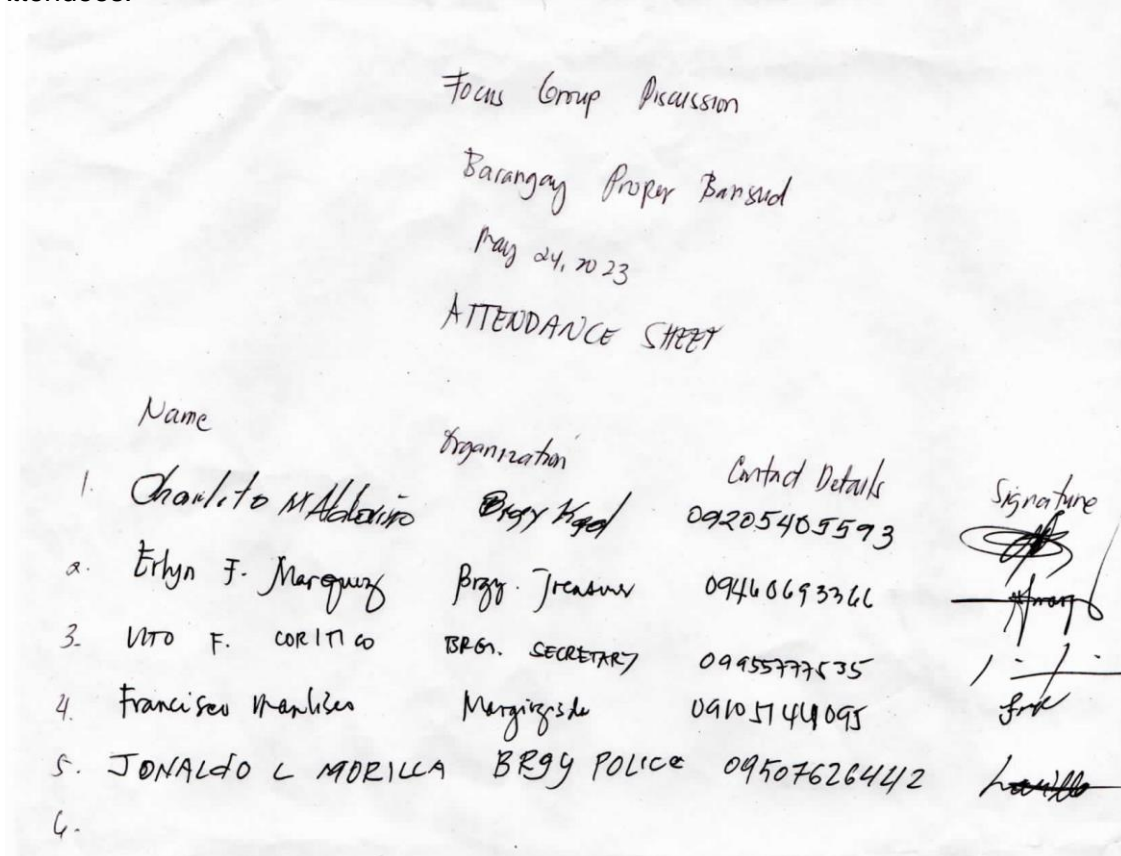 Focus Group Discussion
Barangay Proper Bansud
May 24, 2023
ATTENDANCE SHEET
Name Organization Contact Details Signature
1. Charlito M Aldovino Brgy Kgd 09205405593
2. Erlyn F. Marquez Brgy. Treasurer 09460693366
3. VITO F. CORITICO BRGY. SECRETARY 09955777535
4. Francisco Manliseo Mangingisda 09105144095
5. JONALdO L MORILLA BRgy POLICE 09507626442
6.